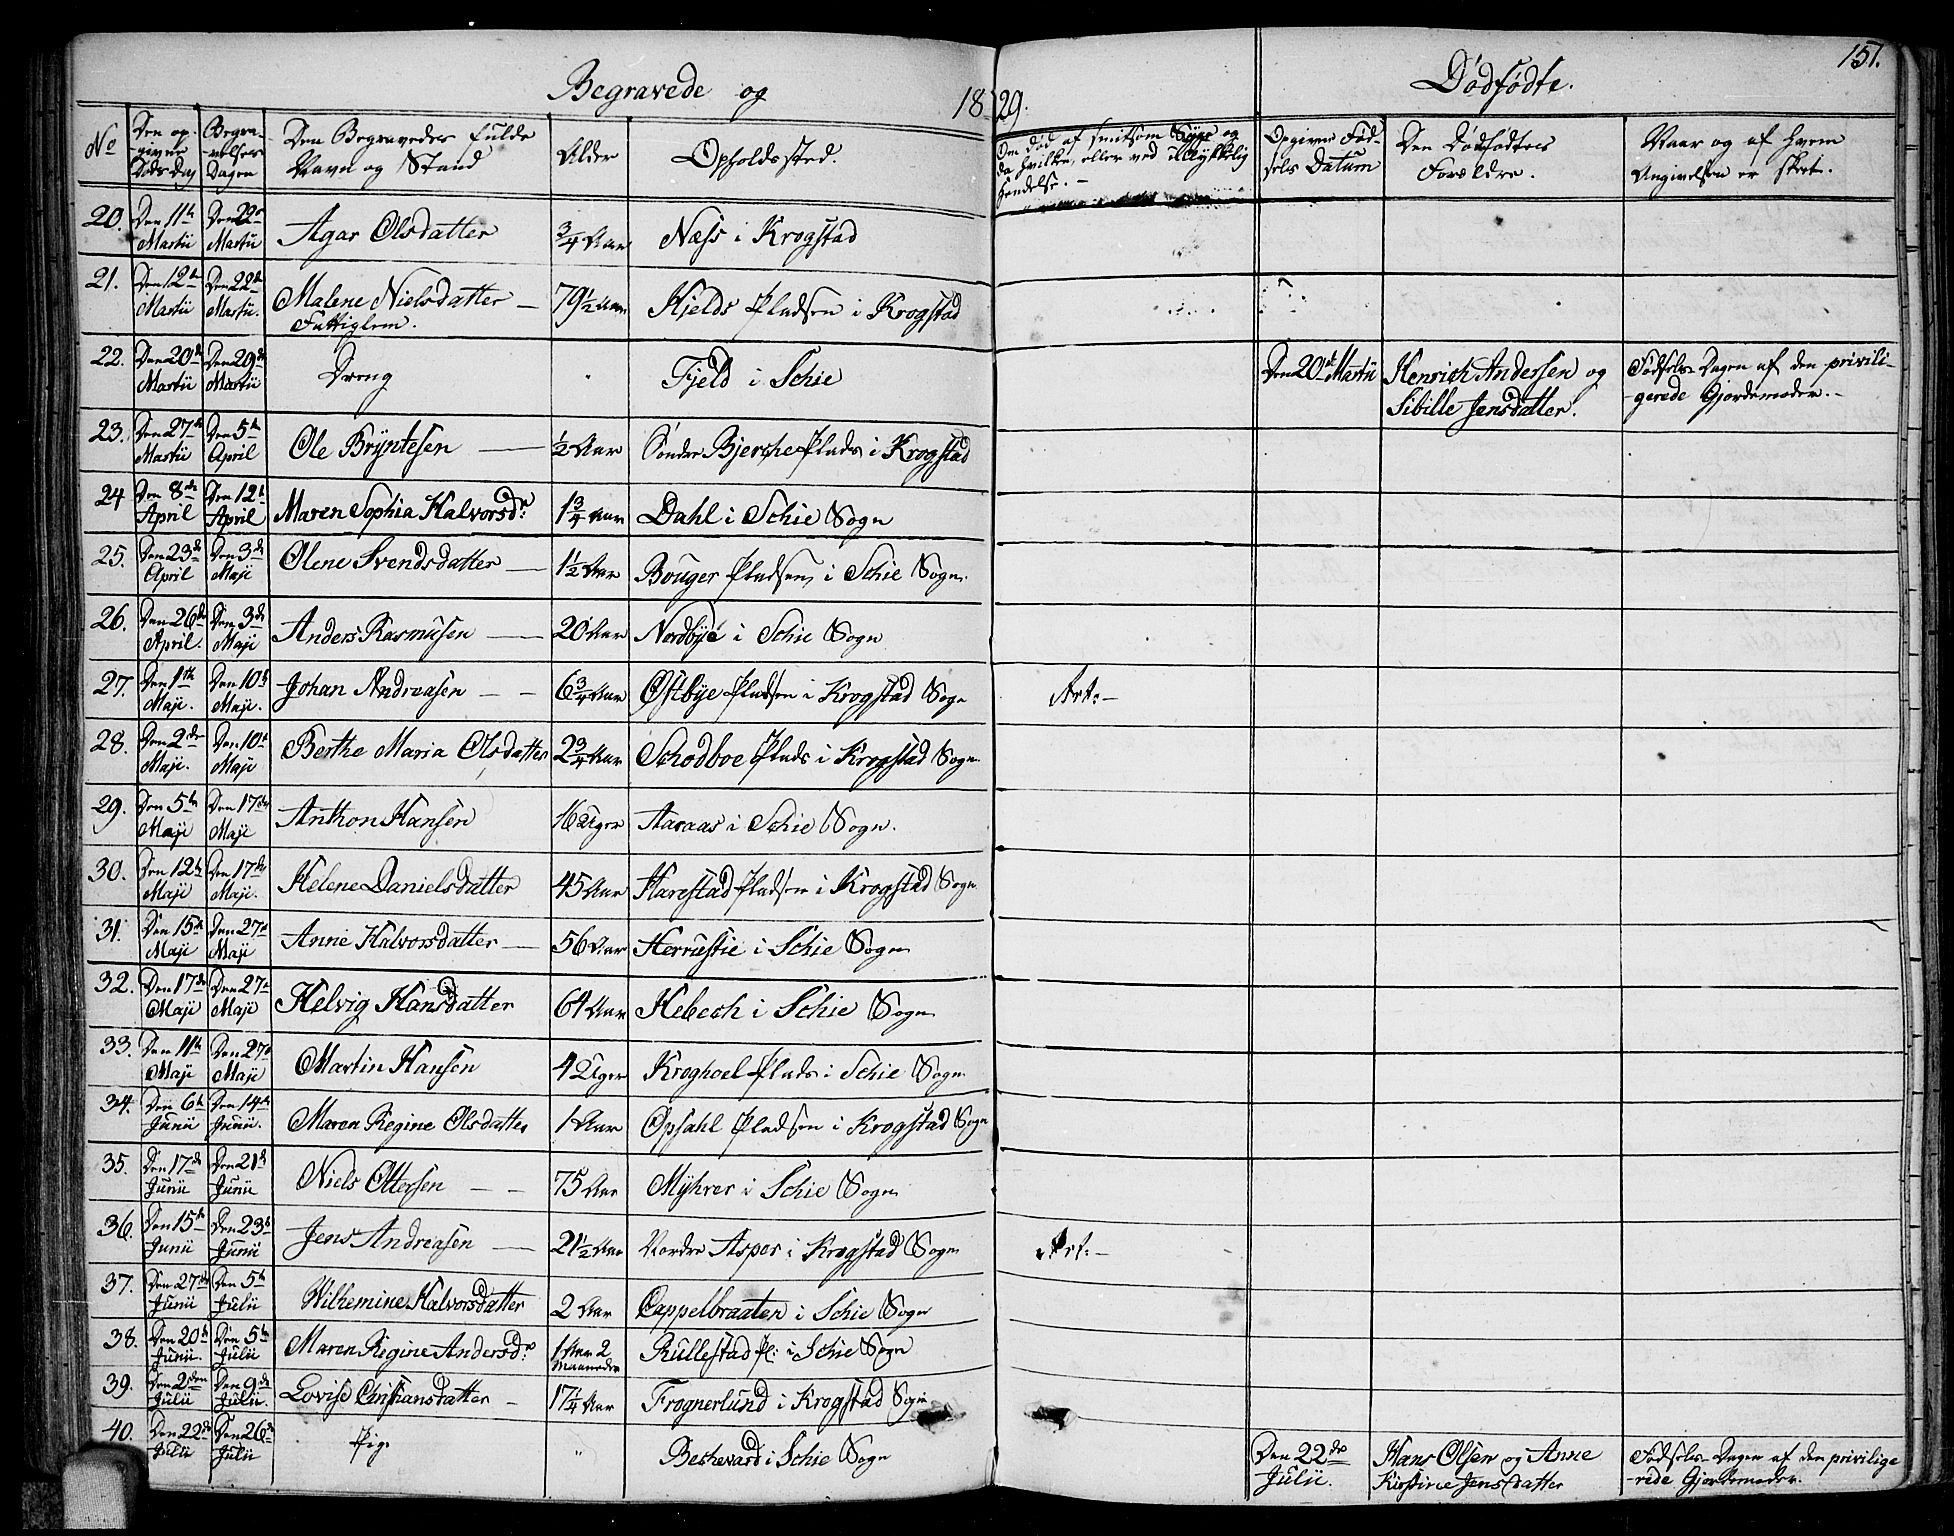 151.
Begravede og 1829. Dødfødte.
No
Den op-
givne
Døds Dag
Begra-
velses
Dagen
Den Begravedes fulde
Navn og Stand
Alder
Opholds sted.
Om død af smitsom Syge og
da hvilken, eller ved ulykkelig
hændelse.-
Opgivne Fød-
sels Datum
Den Dødfødtes
Forældre.
Naar og af hvem
Angivelsen er skeet.
20. Den 11te Martii Den 22de Martii Agar Olsdatter 3/4 Aar Næss i Krogstad
21. Den 12te Martii Den 22de Martii. Malene Nielsdatter — 79 1/2 Aar Kjelds Pladsen i Krogstad
Fattiglem.
22. Den 20de Martii Den 29de Martii Dreng Fjeld i Schie Den 20de Martii Henrich Andersen og Fødsels-Dagen af den privili-
Sibille Jensdatter. -gerede Gjordemoder.-
23. Den 27de Martii Den 5te April Ole Bryntesen — 1/2 Aar Søndre Bjerche Plads i Krogstad
24 Den 8de April Den 12te April Maren Sophia Halvorsdr: 1 3/4 Aar Dahl i Schie Sogn
25. Den 23de April Den 3de Maji Olene Svendsdatter — 1 1/2 Aar Bouger Pladsen i Schie Sogn.
26. Den 26de April. Den 3de Maji Anders Rasmusen — 20 Aar Nordbye i Schie Sogn
27. Den 1ste Maji. Den 10de Maji. Johan Andreasen - - 6 3/4 Aar Østbye Pladsen i Krogstad Sogn Art:-
28. Den 2den Maji. Den 10de Maji Berthe Maria Olsdatter 2 3/4 Aar Schodboe Plads i Krogstad Sogn
29. Den 5te Maji Den 17de Maji Anthon Hansen 16 Uger Aaraas i Schie Sogn.
30. Den 12te Maji Den 17de Maji. Helene Danielsdatter 45 Aar Harestad Pladsen i Krogstad Sogn
31. Den 15de Maji Den 27de Maji Anne Halvorsdatter — 56 Aar Herrustie i Schie Sogn
32. Den 17de Maji Den 27de Maji Helvig Hansdatter 64 Aar Hebech i Schie Sogn
33. Den 11te Maji Den 27de Maji Martin Hansen 4 Uger Kroghoel Plads i Schie Sogn
34. Den 6te Junii Den 14de Junii. Maren Regine Olsdatter 1 Aar Opsahl Pladsen i Krogstad Sogn
35. Den 17de Junii Den 21de Junii Niels Ottersen - - 75 Aar Myhrer i Schie Sogn
36. Den 15de Junii Den 23de Junii Jens Andreasen — 21 1/2 Aar Nordre Aspor i Krogstad Sogn Art:-
37. Den 27de Junii Den 5te Julii Wilhemine Halvorsdatter 2 Aar Cappelbraaten i Schie Sogn
38. Den 20de Junii. Den 5te Julii Maren Regine Andersdr: 1 Aar 2 Maaneder Rullestad Pl: i Schie Sogn
39. Den 2den Julii Den 9de Julii. Lovise Christiansdatter - 17 1/4 Aar Frognerlund i Krogstad Sogn
40. Den 22de Julii Den 26de Julii Pige " Beskevard i Schie Sogn Den 22de Julii. Hans Olsen og Anne Fødsels-Dagen af den privilige
Kirstine Jensdatter -rede Gjordemoder.